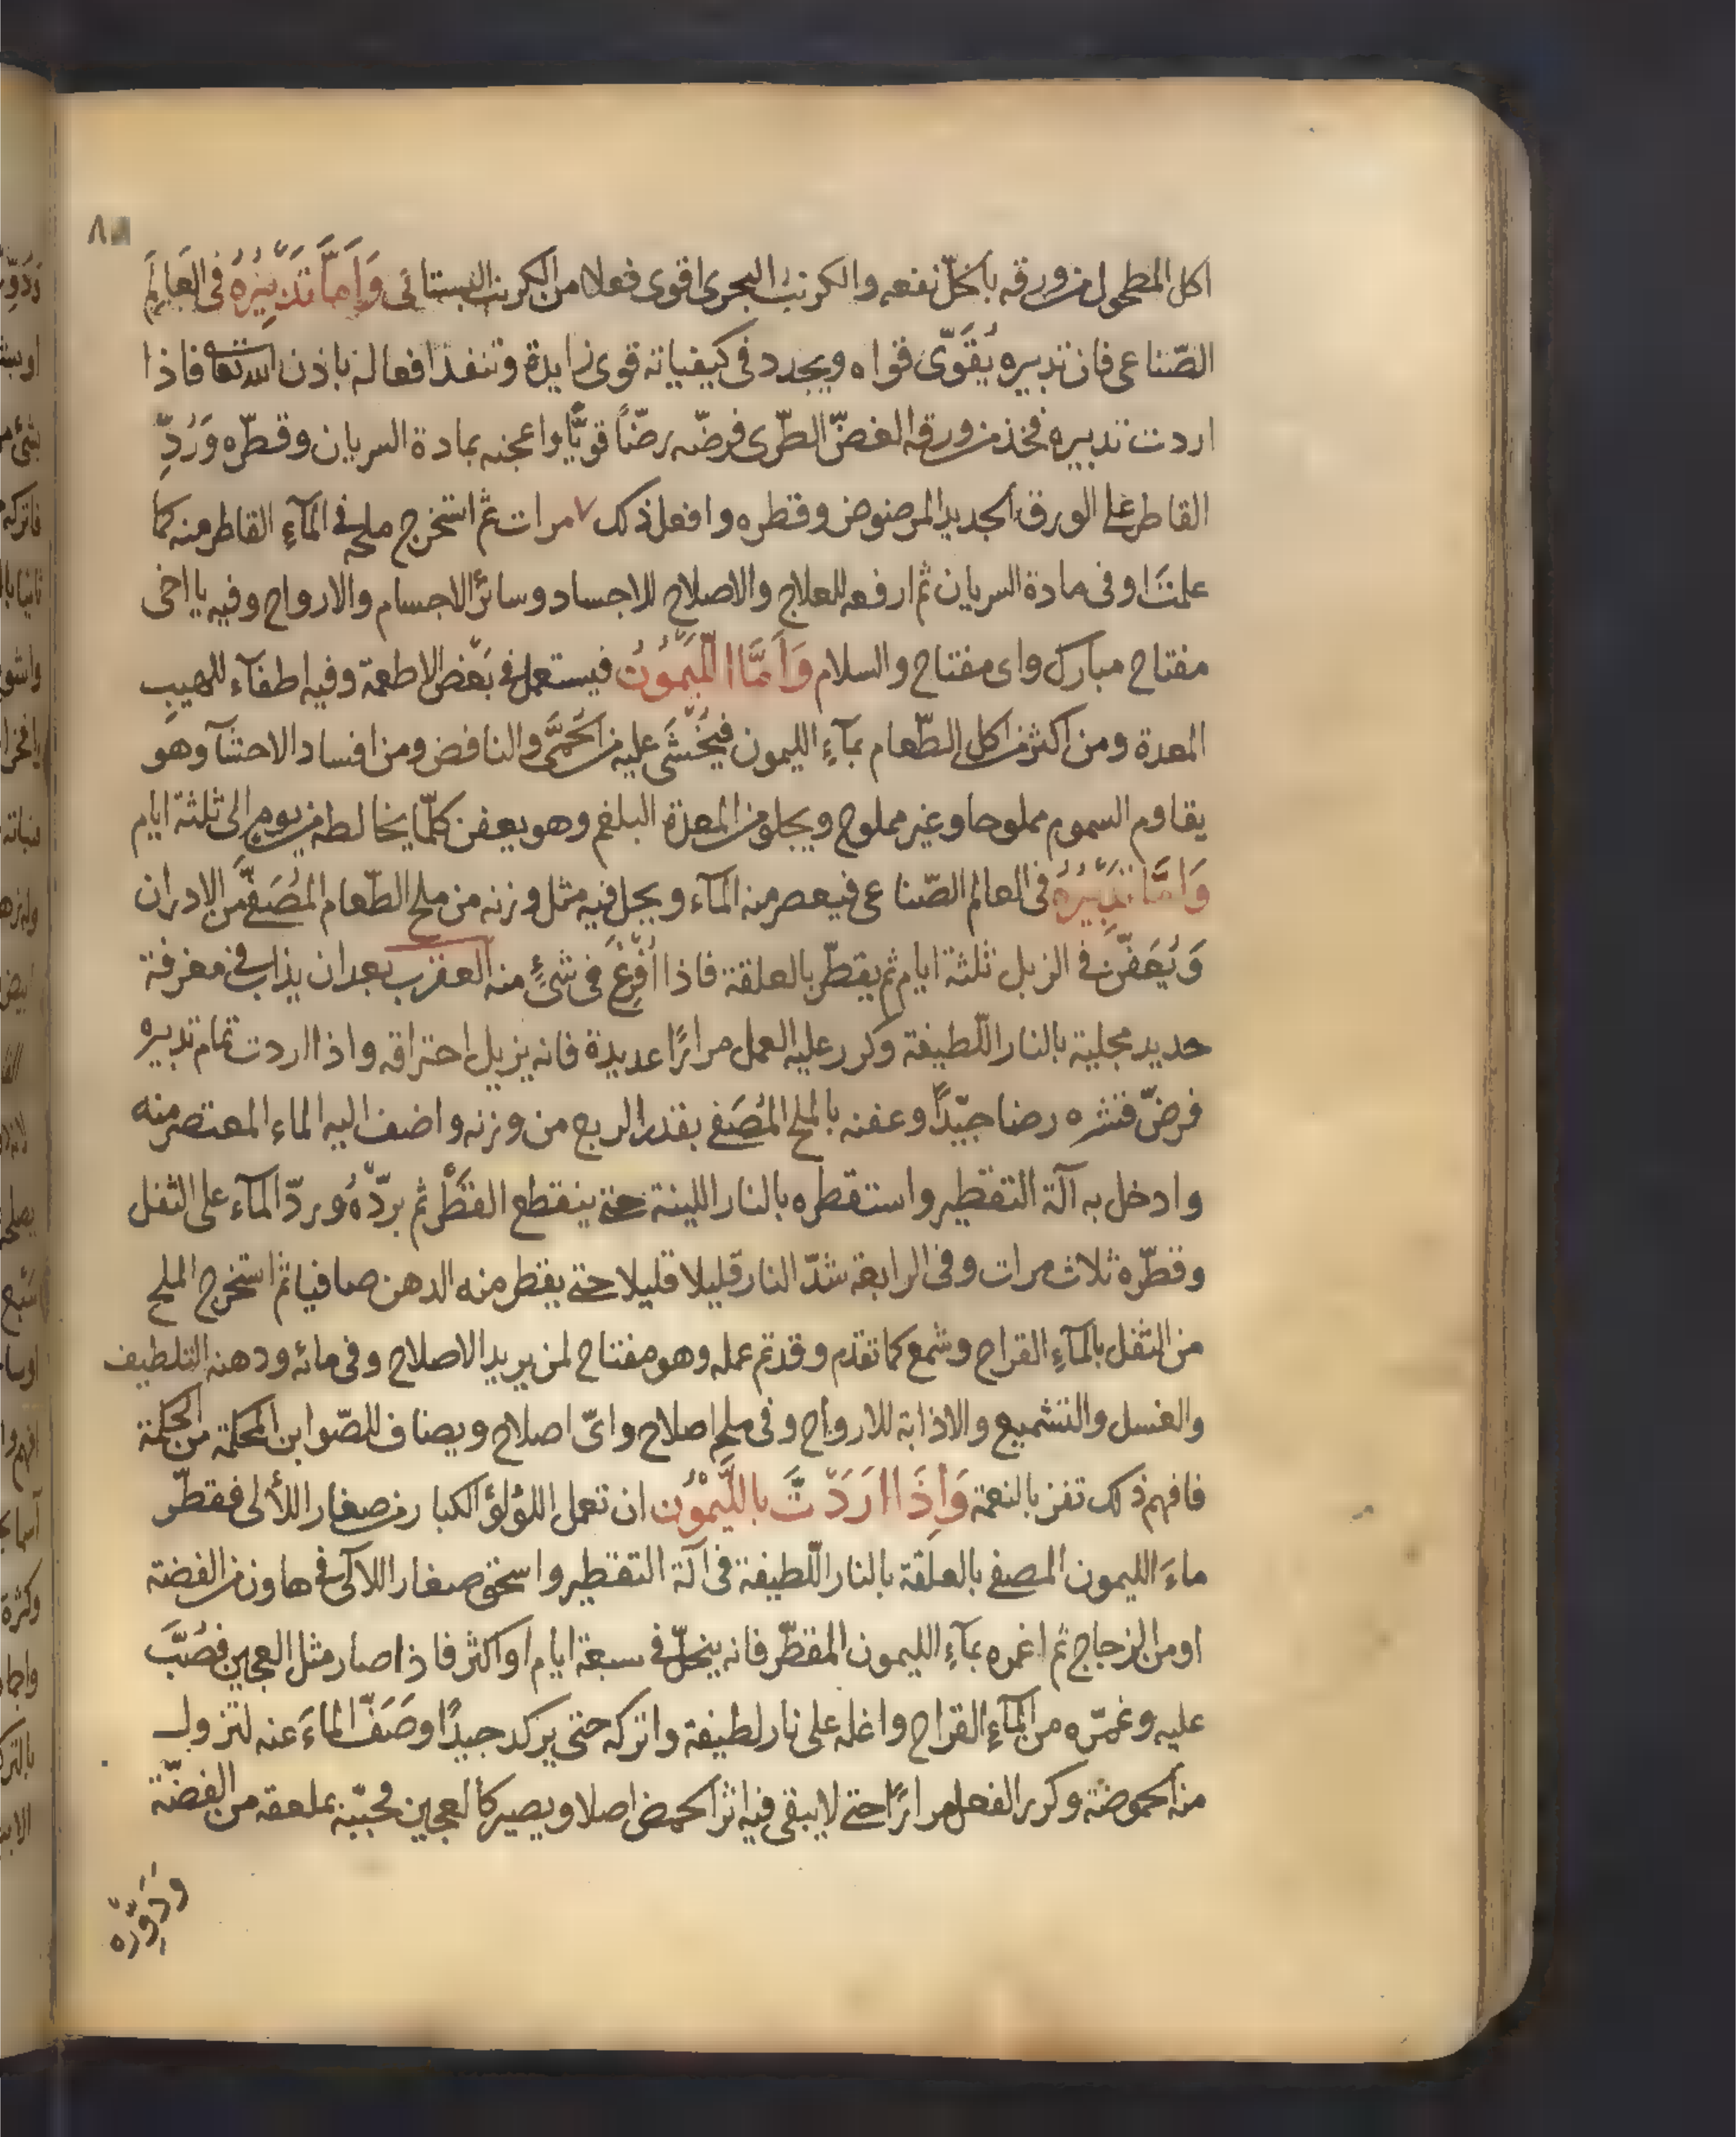 ٨
اكل المطحول من ورقه بالخلّ نفعه والكرنب البحرى اقوى فعلا من الكرنب البستانى وَاَمَّا تَدْبِيْرُهُ فى العَالَمِ
الصّناعى فان تدبيره يُقَوِّى قواه ويجدد فى كيفياته قوى زايدة وتنفذ افعاله باذن الله تعا فاذا
اردت تدبيره فخذ من ورقه الغضّ الطّرى فرضّه رضّاً قويًّا واعجنه بمادة السريان وقطّره وَرُدّ
القاطر على الورق الجديد المرضوض وقطره وافعل ذلك ٧ مرات ثم استخرج ملحه فى المآءِ القاطر منه كما
علمتَ اوفى مادة السريان ثم ارفعه للعلاج والاصلاح للاجساد وسائر الاجسام والارواح وفيه يا اخى
مفتاح مبارك واى مفتاح والسلام وَاَمَّا اللَّيْمُوْنُ فيستعمل فى بَعْض الاطعمة وفيه اطفآء للهيب
المعدة ومن اكثر من اكل الطّعام بمآءِ الليمون فيُخْشَى عليه من الحُمَّى والنافض ومن افساد الاحشآ وهو
يقاوم السموم مملوحا وغير مملوح ويجلو من المعدة البلغم وهو يعفن كلّما يخالطه من يوم الى ثلثة ايام
وَاَمَّا تَدْبِيْرُهُ فى العالم الصّناعى فيعصر منه المآء ويحل فيه مثل وزنه من ملح الطّعام المُصَفَّى من الادران
وَيُعَفَّن فى الزبل ثلثة ايام ثم يقطّر بالعلقة فاذا اُفْرِغَ فى شئٍ منه العقرب بعد ان يذاب فى مغرفة
حديد مجلية بالنار اللّطيفة وكرر عليه العمل مرارًا عديدة فانه يزيل احتراقه واذا اردت تمام تدبيره
فرضّ قشره رضا جيّدًا وعفنه بالملح المُصَفى بقدر الربع من وزنه واضف اليه الماء المعتصر منه
وادخل به آلة التقطير واستقطره بالنار اللينة حتى ينقطع القَطْر ثم برّدْهُ وردّ المآء على الثفل
وقطّره ثلاث مرات وفى الرابعة شدّ النار قليلا قليلا حتى يقطر منه الدهن صافيا ثم استخرج الملح
من الثفل بالمآءِ القراح وشمع كما تقدم وقد تم عمله وهو مفتاح لمن يريد الاصلاح وفى مائه ودهنه التلطيف
والغسل والتشميع والاذابة للارواح وفى ملحه اصلاح واىّ اصلاح ويضاف للصّوابن المحكمة من الحكمة
فافهم ذلك تفز بالنعمة وَاِذَا اَرَدْتَّ باللَّيْمُوْن ان تعمل اللؤلؤ الكبار من صغار اللألى فقطّر
ماءَ الليمون المصفى بالعلقة بالنار اللّطيفة فى آلة التقطير واسحق صغار اللآلى فى هاون من الفضة
او من الزجاج ثم اغمره بمآءِ الليمون المقطّر فانه ينحلّ فى سبعة ايام او اكثر فاذا صار مثل العجين فصُبَّ
عليه وغمّره من المآءِ القراح واغله على نار لطيفة واتركه حتى يركد جيدًا وصَفّ الماءَ عنه لتزول
منه الحموضة وكرر الفعل مرارًا حتى لا يبقى فيه اثر الحمض اصلا ويصير كالعجين فحبّبه بملعقة من الفضّة
وَدَوِّرْه